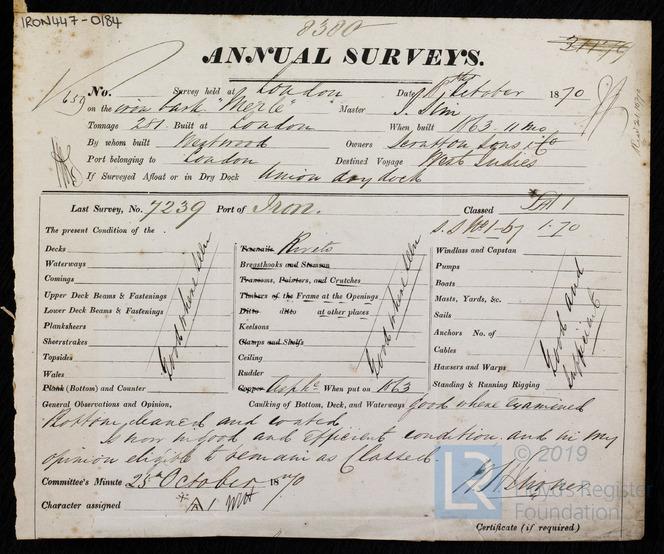 IRON447-0184
8380
ANNUAL SURVEYS.
No. 659 Survey held at London Date October 1870
on the iron bark "Merle" Master J. Slim
Tonnage 281 Built at London When built 1863. 11 mo
By whom built Westwood Owners Scrutton Sons & Co
Port belonging to London Destined Voyage West Indies
If Surveyed Afloat or in Dry Dock Union dry dock
Last Survey, No. 7239 Port of Iron. Classed A 1
S.S No1-67 1.70
The present Condition of the
Decks
Waterways
Comings
Upper Deck Beams & Fastenings
Lower Deck Beams & Fastenings
Planksheers
Sheerstrakes
Topsides
Wales
Plank (Bottom) and Counter
Good where seen
Treenails Rivets
Breasthooks and Stemson
Transoms, Pointers, and Crutches
Timbers of the Frame at the Openings
Ditto ditto at other places
Keelsons
Clamps and Shelfs
Ceiling
Rudder
Copper Asphe When put on 1863
Good where seen
Windlass and Capstan
Pumps
Boats
Masts, Yards, &c.
Sails
Anchors No. of
Cables
Hawsers and Warps
Standing & Running Rigging
Good and sufficient
General Observations and Opinion, Caulking of Bottom, Deck, and Waterways Good where examined
Bottom cleaned and coated
Is now in good and efficient condition and in my
opinion eligible to remain as Classed.
Committee's Minute 25th October 1870
Character assigned A 1
Certificate (if required)
© 2019
LR
Lloyd's Register
Foundation